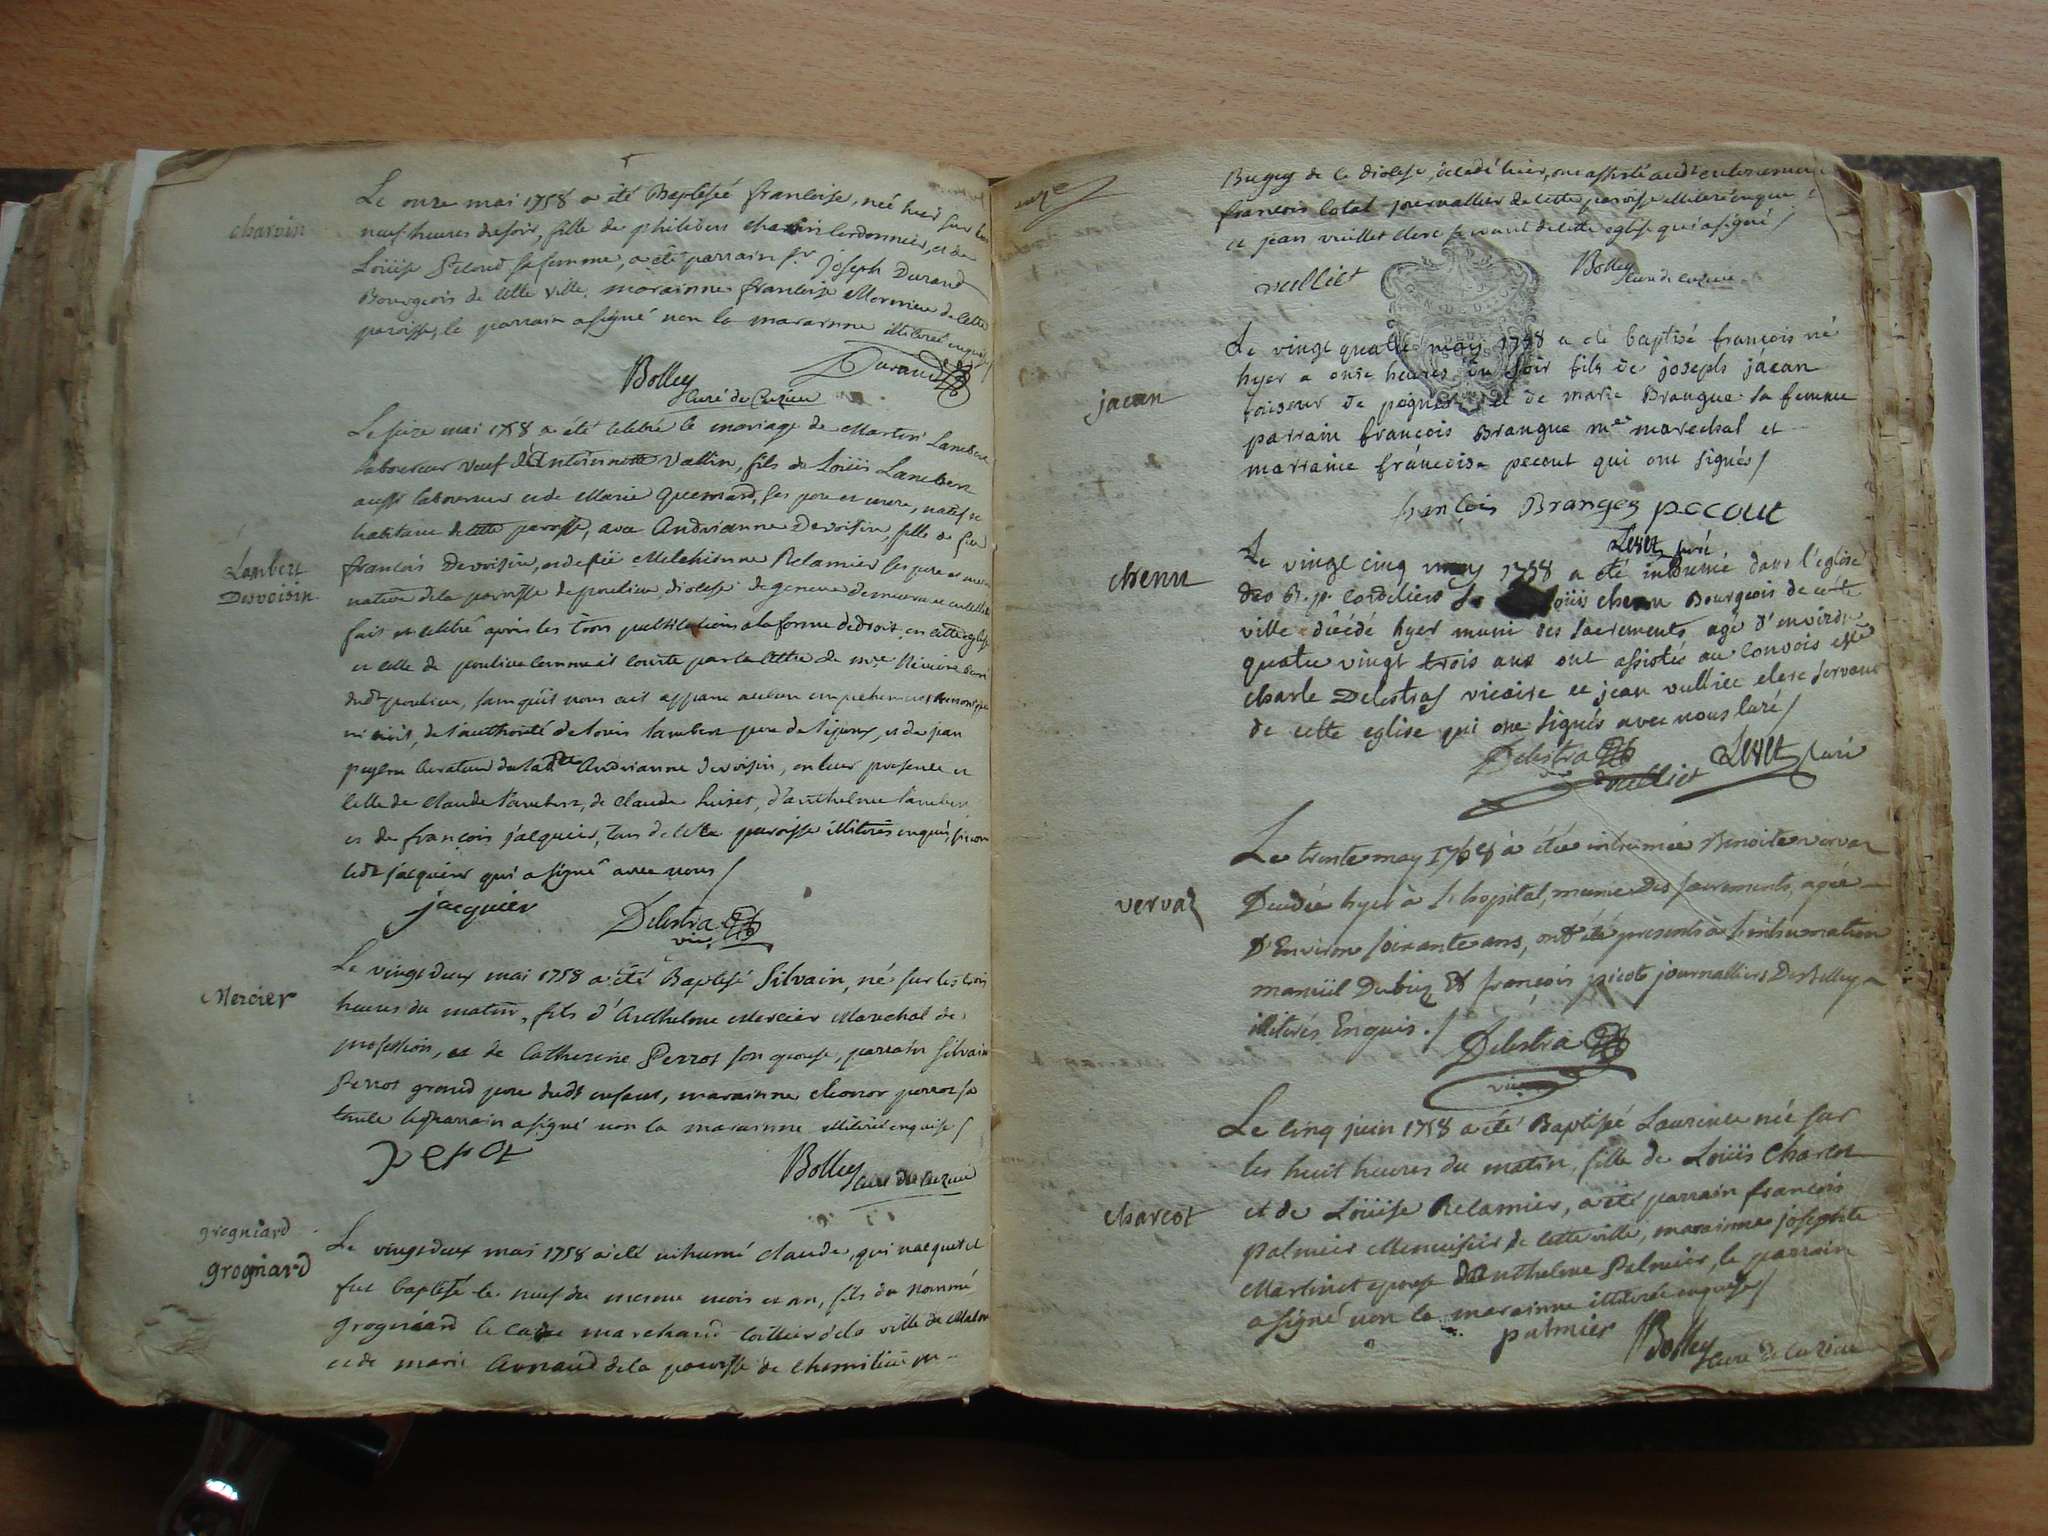 charvin
Le onze mai 1758 a été Baptisée francoise, née hier sur les
neuf heures du soir, fille de philibers charvin Cordonnier, et de
Loüise sa femme, a été parrain Sr Joseph Durand
Bourgeois de cette ville, marainne francoise de cette
paroisse, le parrain a signé non la marainne illiterée enquise
Bolley Durand
Curé de Cuzieu
Lambert
Desvoisin
Le seize mai 1758 a été celebré le mariage de Martin Lambert
laboureur veuf d'Antoinette Vallin, fils de Loüis Lambert
aussi laboureur et de Marie Quemard, ses pere et mere, natif et
habitant de cette paroisse, avec Andrianne Devoisin, fille de feu
francois Devoisin, et de feüe Melchionne Relamier ses pere et mere
native de la paroisse de poulieu, diocese de geneve demeurante en cette
fait et celebré après les trois publications a la forme de droit, en cette eglise
et celle de poulieu comme il conste par la lettre de mre curé
dudt poulieu, sans qu'il nous ait apparu aucun empechement
ni civil, de l'authorité de Louis lambert pere de l'epoux, et de jean
curateur de ladte Andrianne devoisin, en leur presence et
celle de claude lambert, de claude huiset, d'anthelme lambert
et de françois jacquier, tous de cette paroisse illiterés enquis, sinon
ledt jacquier qui a signé avec nous /
jacquier Delestra
vic.
Mercier
Le vingt deux mai 1758 a été Baptisé Silvain, né sur les trois
heures du matin, fils d'Anthelme Mercier Marechal de
profession, et de Catherine Perrot son epouse, parrain Silvain
Perrot grand pere dudt enfant, marainne eleonor perrot sa
tante le parrain a signé non la marainne illiterée enquise /
perot
Bolley Curé de Cuzieu
grogniard
grogniard
Le vingt deux mai 1758 a été inhumé claude, qui nacquit et
fut baptisé le neuf du meme mois et an, fils du nommé
grogniard le cadet marchand de la ville de
et de marie Arnaud de la paroisse de chemilieu en
Bugey de ce diocese, decedé hier, ont assisté audt enterrement
francois Cotat journallier de cette paroisse illiteré enquis
et jean vuillet clerc servant de cette eglise qui a signé /
vulliet Bolley
Curé de Cuzieu
jacan
Le vingt quatre may 1758 a eté baptisé françois né
hyer a onze heures du soir fils de joseph jacan
faiseur de peignes et de marie Brangue sa femme
parrain françois Brangue me marechal et
marraine françoise pecout qui ont signés /
françois Branges pecout
Levet curé
chenu
Le vingt cinq may 1758 a été inhumé dans l'eglise
des R. p. cordeliers Sr Loüis chenu Bourgeois de cette
ville décédé hyer muni des sacrements, agé d'environ
quatre vingt trois ans ont assistés au convois
charle Delestraz vicaire et jean vulliet clerc servant
de cette eglise qui ont signés avec nous curé /
Delestra Levet curé
vulliet
vervaz
Le trente may 1758 à étée inhumée Benoite vervaz
Decedée hyer à L'hopital, munie Des sacrements, agée
D'Environ soixante ans, ont été presents à L'inhumation
et françois picot journalliers De Belley
illiterés Enquis. /
Delestra
vic.
charcot
Le cinq juin 1758 a été Baptisé Laurence née sur
les huit heures du matin, fille de Loüis Charcot
et de Loüise Relamier, a été parrain francois
palmier Menuisier de cette ville, marainne josephte
Martinet epouse d'Anthelme Palmier, le parrain
a signé non la marainne illiterée enquise /
palmier Bolley
Curé de Cuzieu